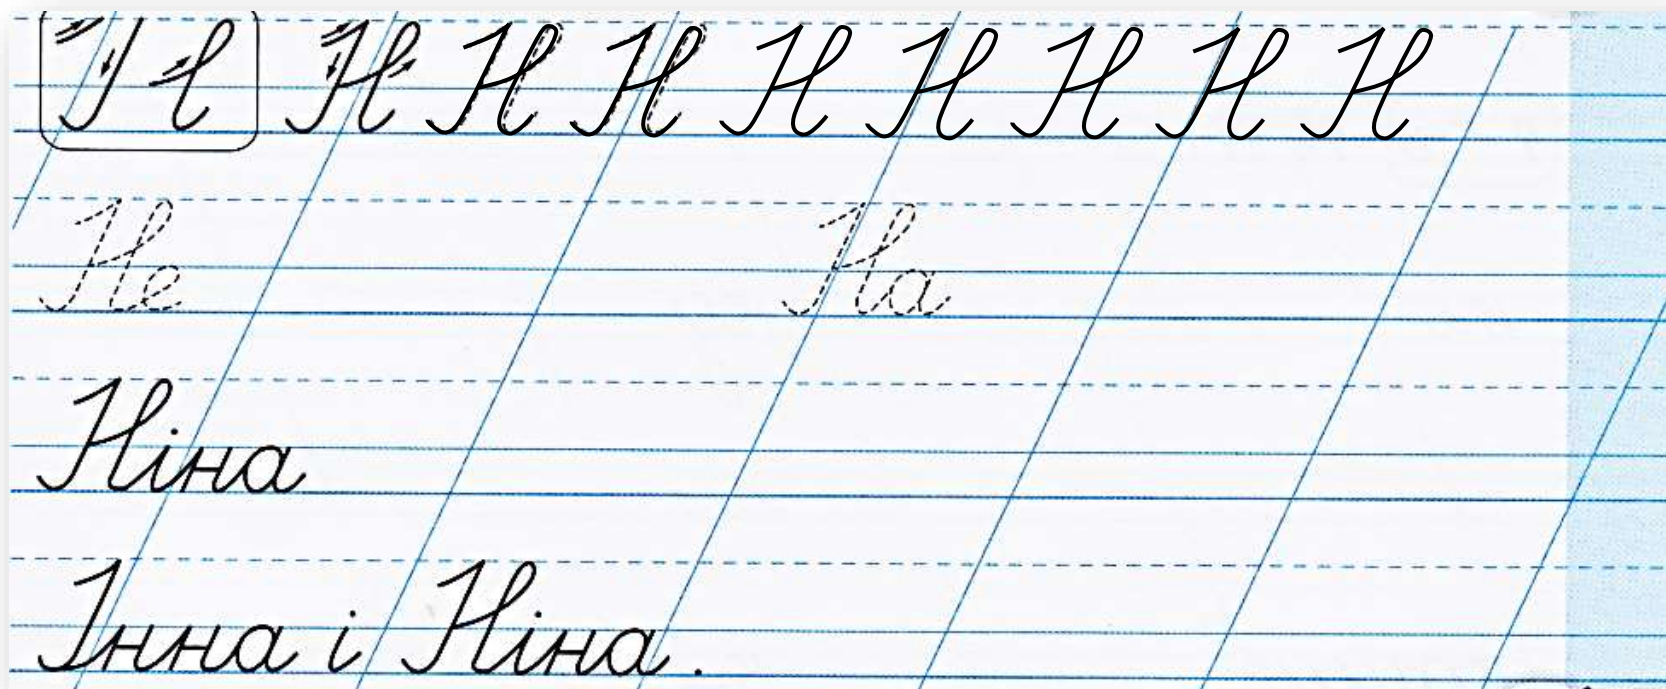 Н Н Н Н Н Н Н Н Н
Не На
Ніна
Інна і Ніна.